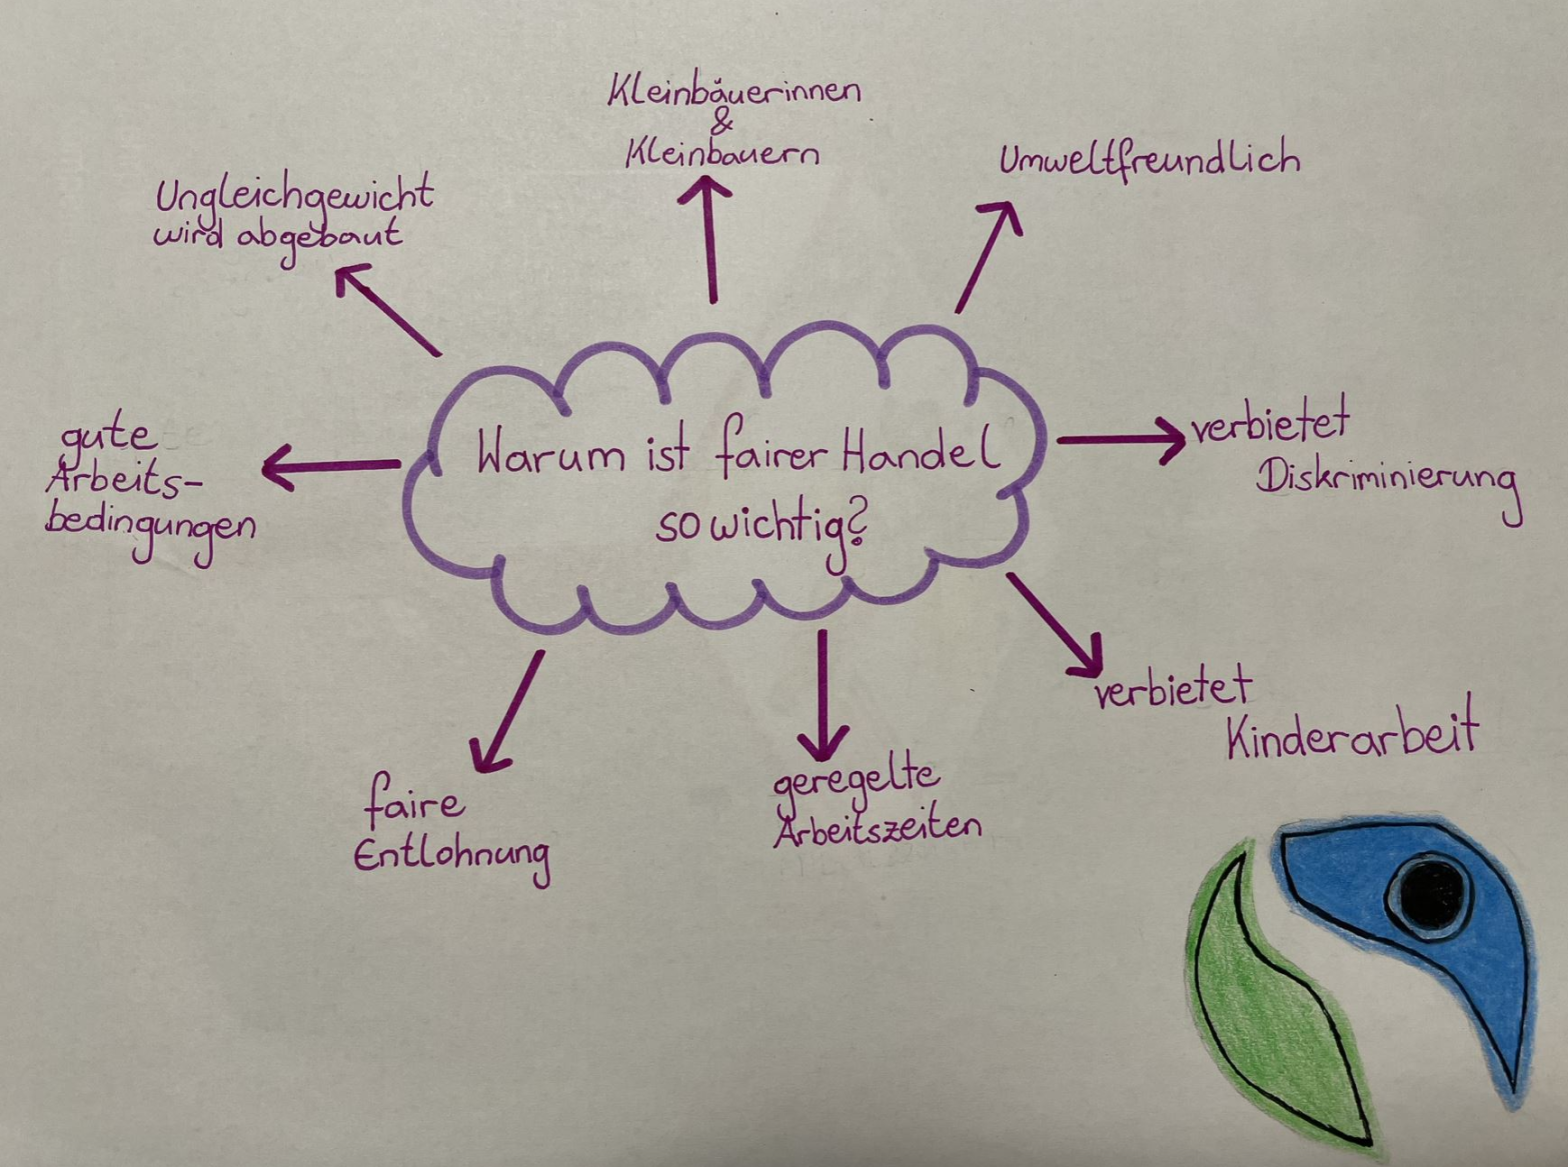 Kleinbäuerinnen
&
Kleinbauern
Umweltfreundlich
Ungleichgewicht
wird abgebaut
Warum ist fairer Handel
so wichtig?
verbietet
Diskriminierung
gute
Arbeits-
bedingungen
verbietet
Kinderarbeit
faire
Entlohnung
geregelte
Arbeitszeiten